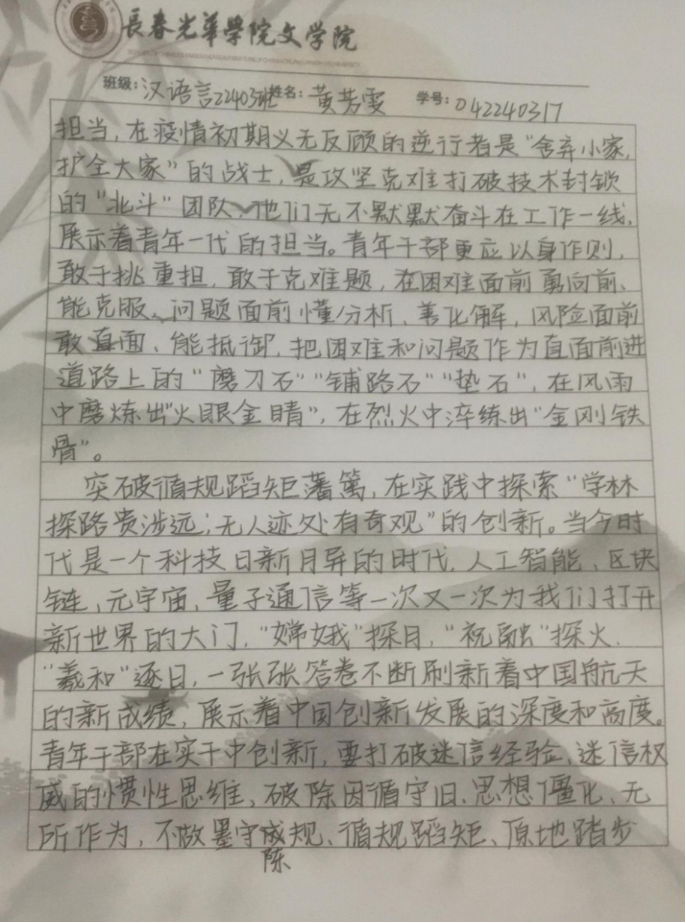 長春光華學院文学院
班级：汉语言22403班 姓名：黄芳雯 学号：042240317
担当，在疫情初期义无反顾的逆行者是“舍弃小家，
护全大家”的战士，是攻坚克难打破技术封锁
的“北斗”团队，他们无不默默奋斗在工作一线，
展示着青年一代的担当。青年干部更应以身作则，
敢于挑重担，敢于克难题，在困难面前勇向前、
能克服、问题面前懂分析、善化解，风险面前
敢直面、能抵御，把困难和问题作为直面前进
道路上的“磨刀石”“铺路石”“垫石”，在风雨
中磨炼出“火眼金睛”，在烈火中淬练出“金刚铁
骨”。
突破循规蹈矩藩篱，在实践中探索“学林
探路贵涉远，无人迹处有奇观”的创新。当今时
代是一个科技日新月异的时代，人工智能、区块
链、元宇宙、量子通信等一次又一次为我们打开
新世界的大门，“嫦娥”探月，“祝融”探火，
“羲和”逐日，一张张答卷不断刷新着中国航天
的新成绩，展示着中国创新发展的深度和高度。
青年干部在实干中创新，要打破迷信经验、迷信权
威的惯性思维，破除因循守旧、思想僵化、无
所作为，不做墨守成规、循规蹈矩、原地踏步
陈